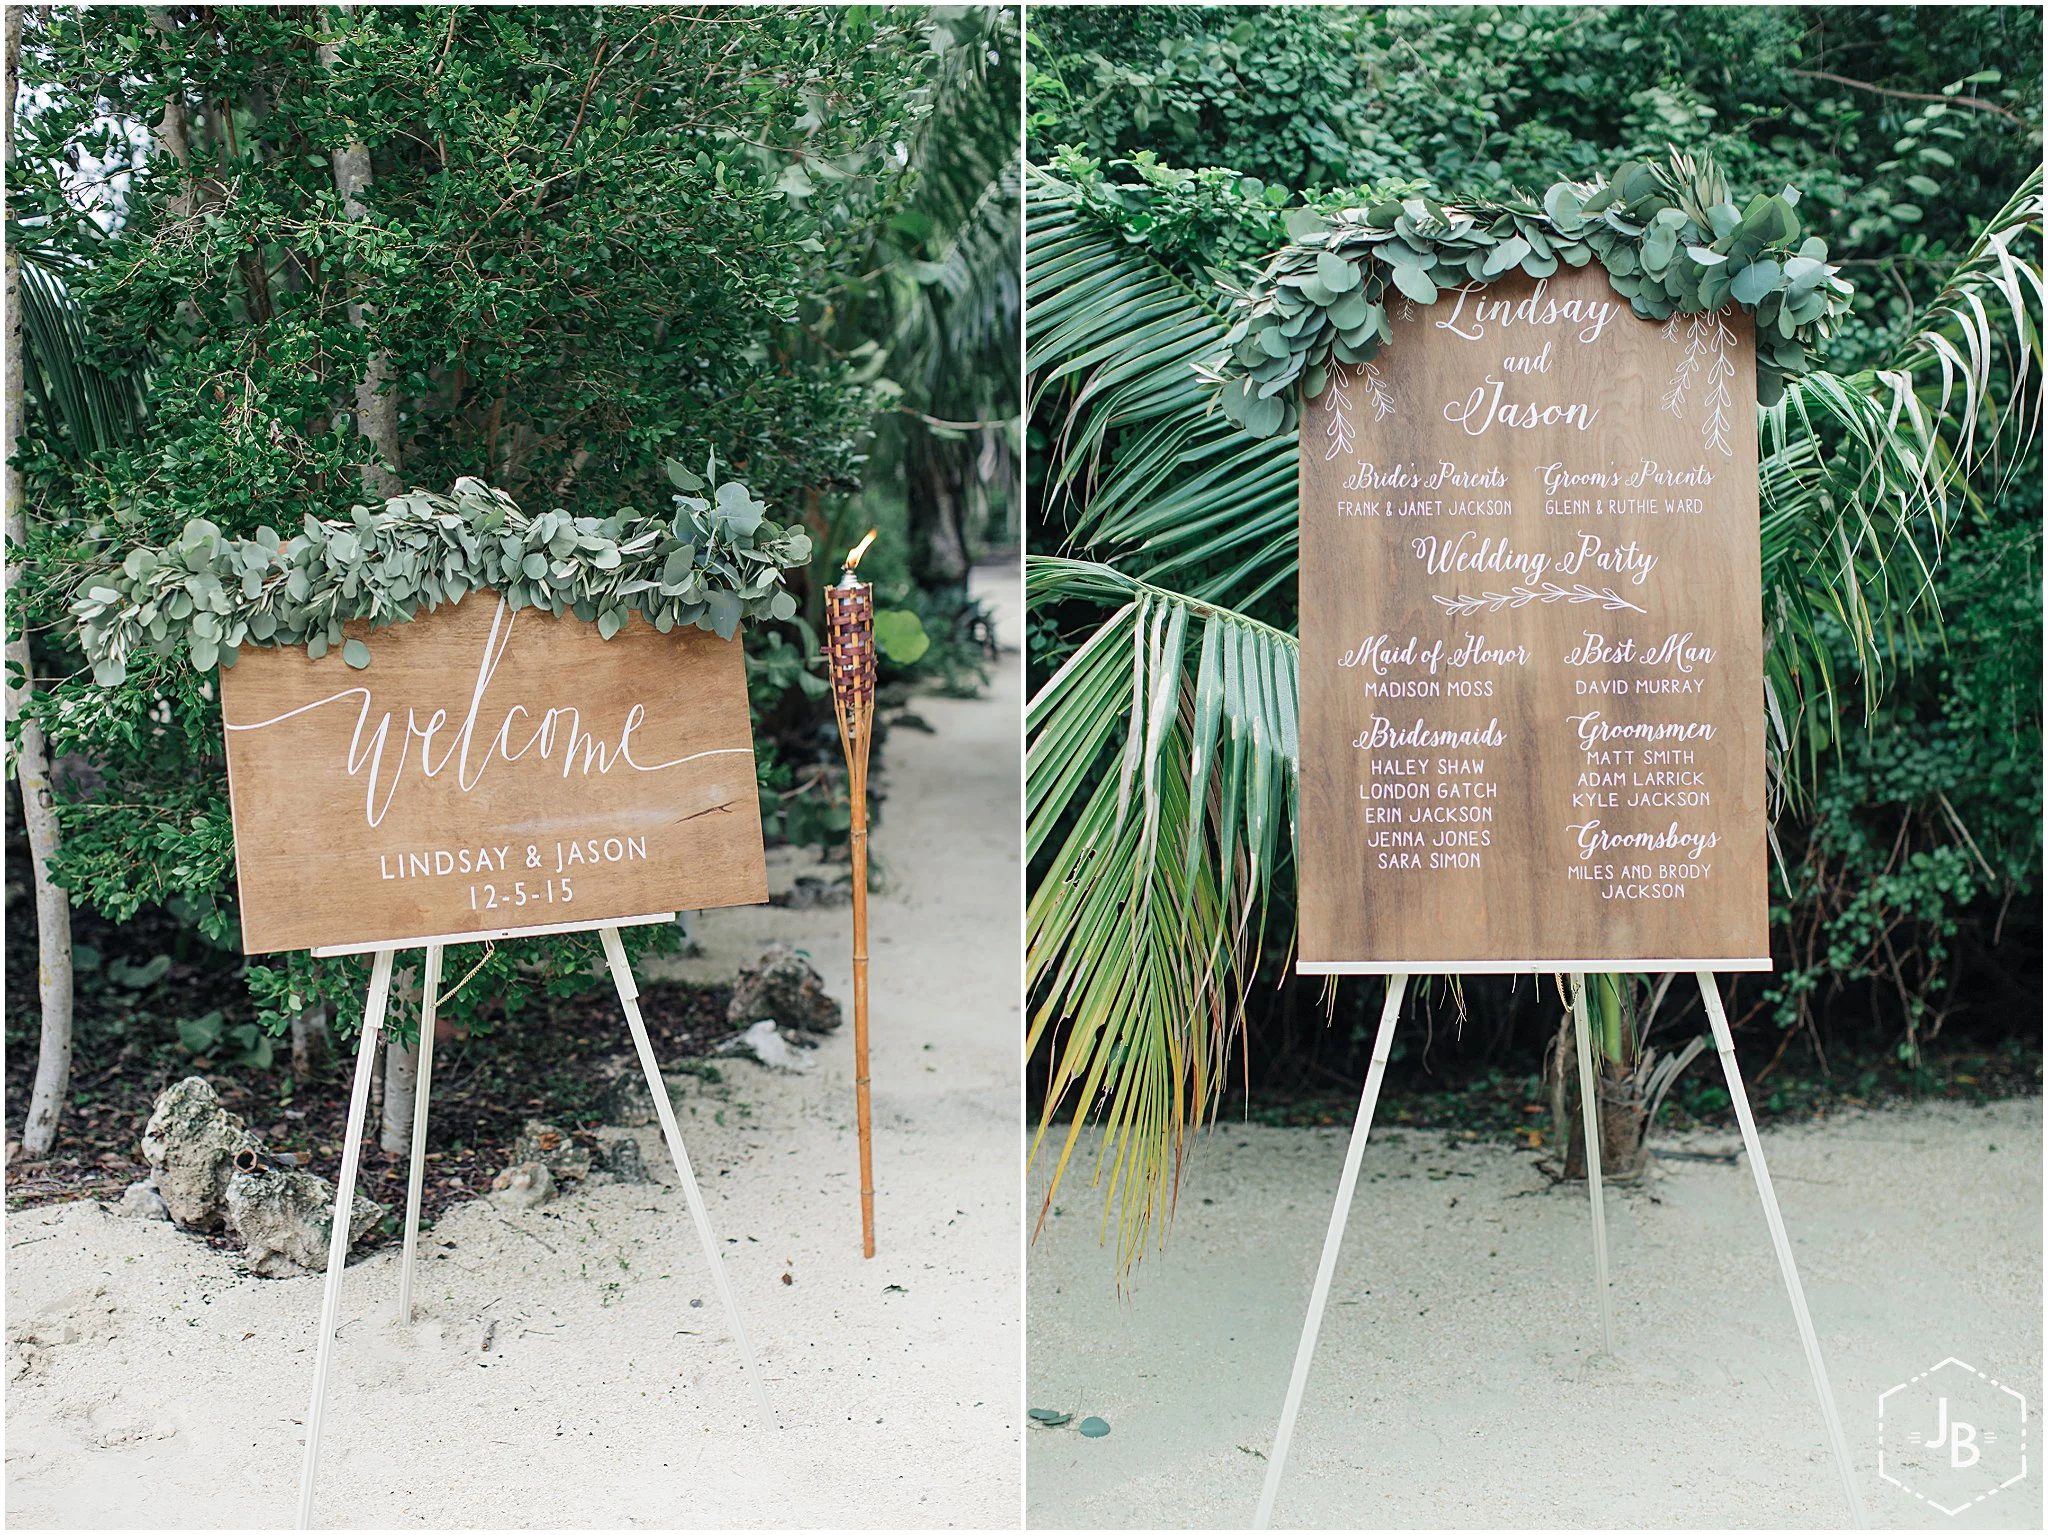 welcome
LINDSAY & JASON
12-5-15
Lindsay
and
Jason
Bride's Parents
FRANK & JANET JACKSON
Groom's Parents
GLENN & RUTHIE WARD
Wedding Party
Maid of Honor
MADISON MOSS
Bridesmaids
HALEY SHAW
LONDON GATCH
ERIN JACKSON
JENNA JONES
SARA SIMON
Best Man
DAVID MURRAY
Groomsmen
MATT SMITH
ADAM LARRICK
KYLE JACKSON
Groomsboys
MILES AND BRODY
JACKSON
JB